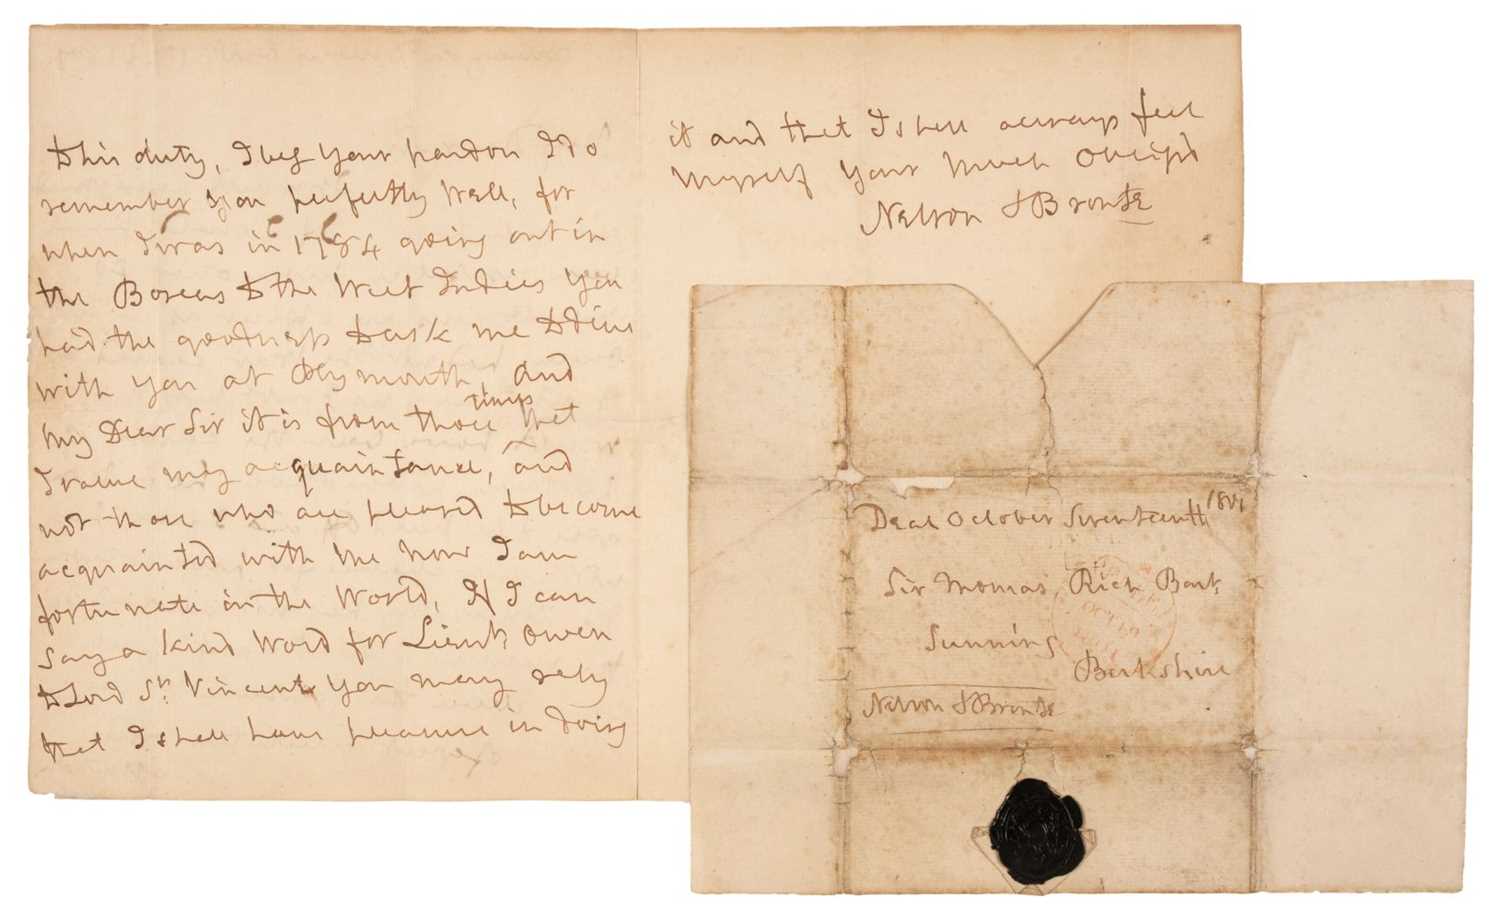 to this duty, I beg your pardon I do
remember you perfectly well, for
when I was in 1784 going out in
the Boreas to the West Indies you
had the goodness to ask me to dine
with you at Plymouth, and
my Dear Sir it is from those times that
I value my acquaintance, and
not those who are pleased to become
acquainted with me now I am
fortunate in the World, If I can
say a kind word for Lieut. Owen
to Lord St. Vincent you may rely
that I shall have pleasure in doing
it and that I shall always feel
myself your much oblig'd
Nelson & Bronte
Deal October Seventeenth 1801
Sir Thomas Rich Bart.
Sunning
Berkshire
Nelson & Bronte